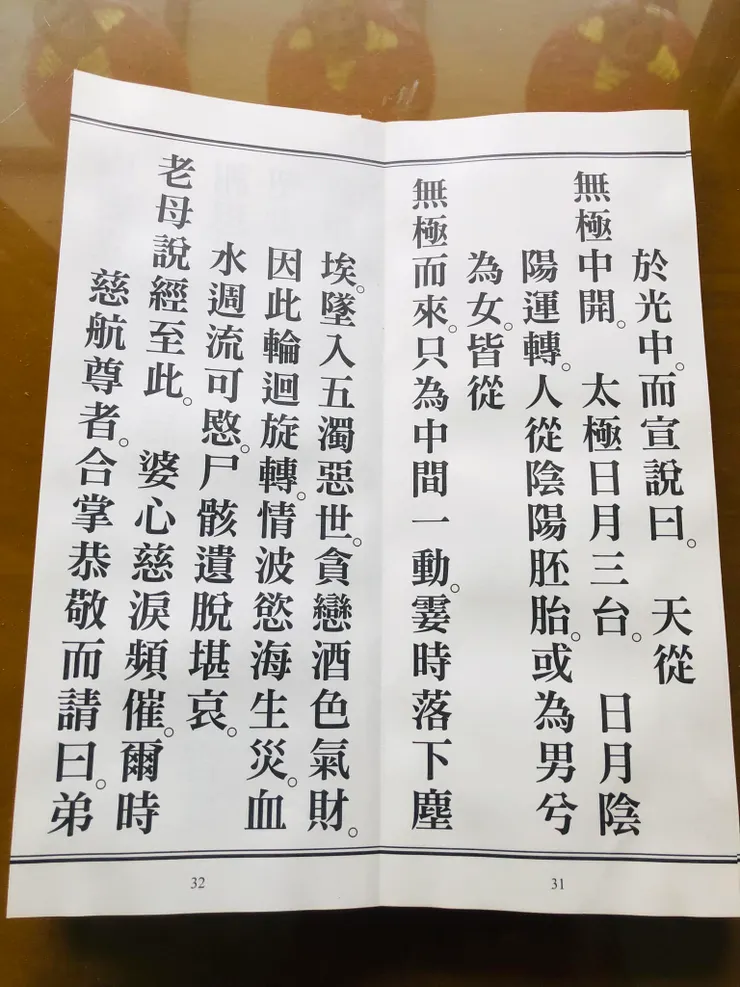 於光中。而宣說曰。　天從
無極中開。　太極日月三台。　日月陰
陽運轉。人從陰陽胚胎。或為男兮
為女。皆從
無極而來。只為中間一動。霎時落下塵
31
埃。墜入五濁惡世。貪戀酒色氣財。
因此輪迴旋轉。情波慾海生災。血
水週流可愍。尸骸遺脫堪哀。
老母說經至此。　婆心慈淚頻催。爾時
慈航尊者。合掌恭敬而請曰。弟
32